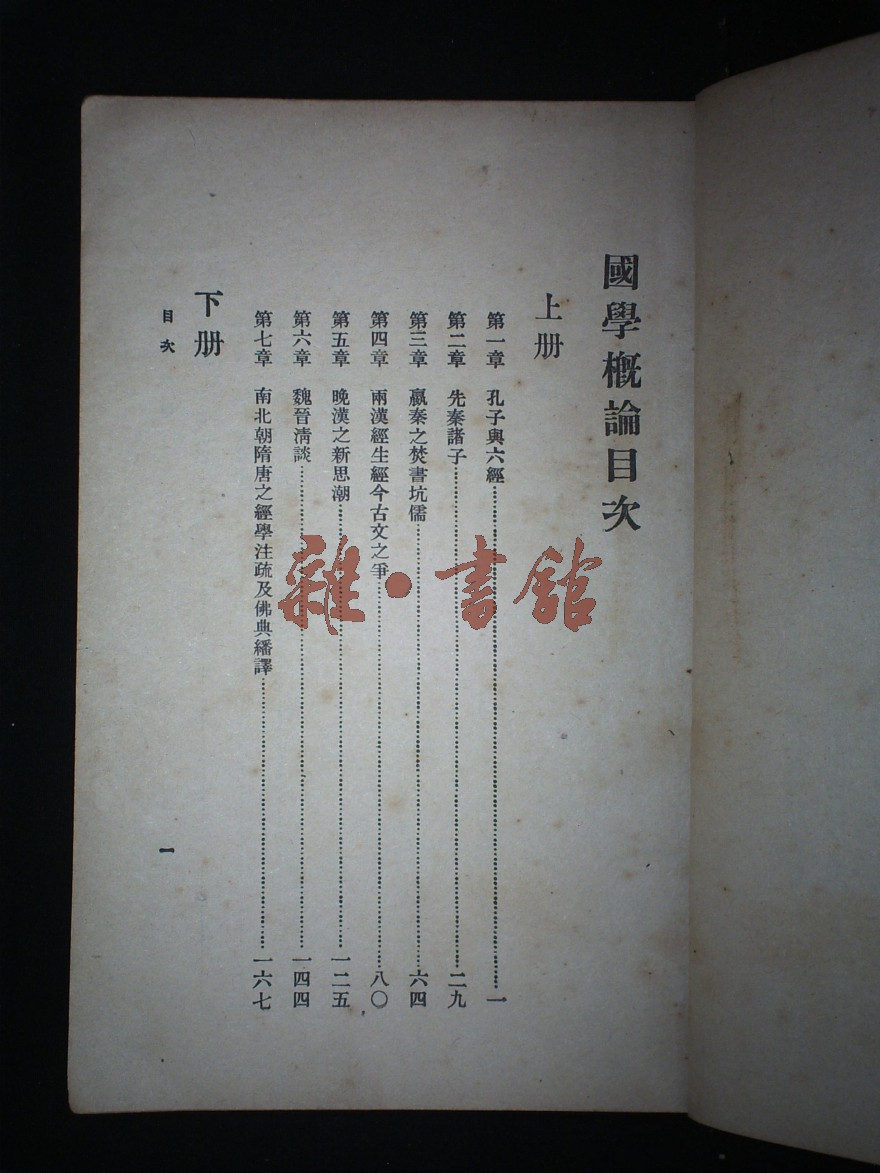 國學槪論目次
上册
第一章 孔子與六經……一
第二章 先秦諸子……二九
第三章 嬴秦之焚書坑儒……六四
第四章 兩漢經生經今古文之爭……八〇
第五章 晚漢之新思潮……一二五
第六章 魏晉淸談……一四四
第七章 南北朝隋唐之經學注疏及佛典繙譯……一六七
下册
目次
一
雜·書館